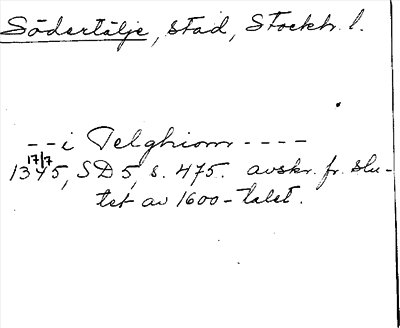 Södertälje, stad, Stockh. l.
- - i Telghiom - - - -
17/7
1345, SD 5, s. 475. avskr. fr. slu-
tet av 1600-talet.